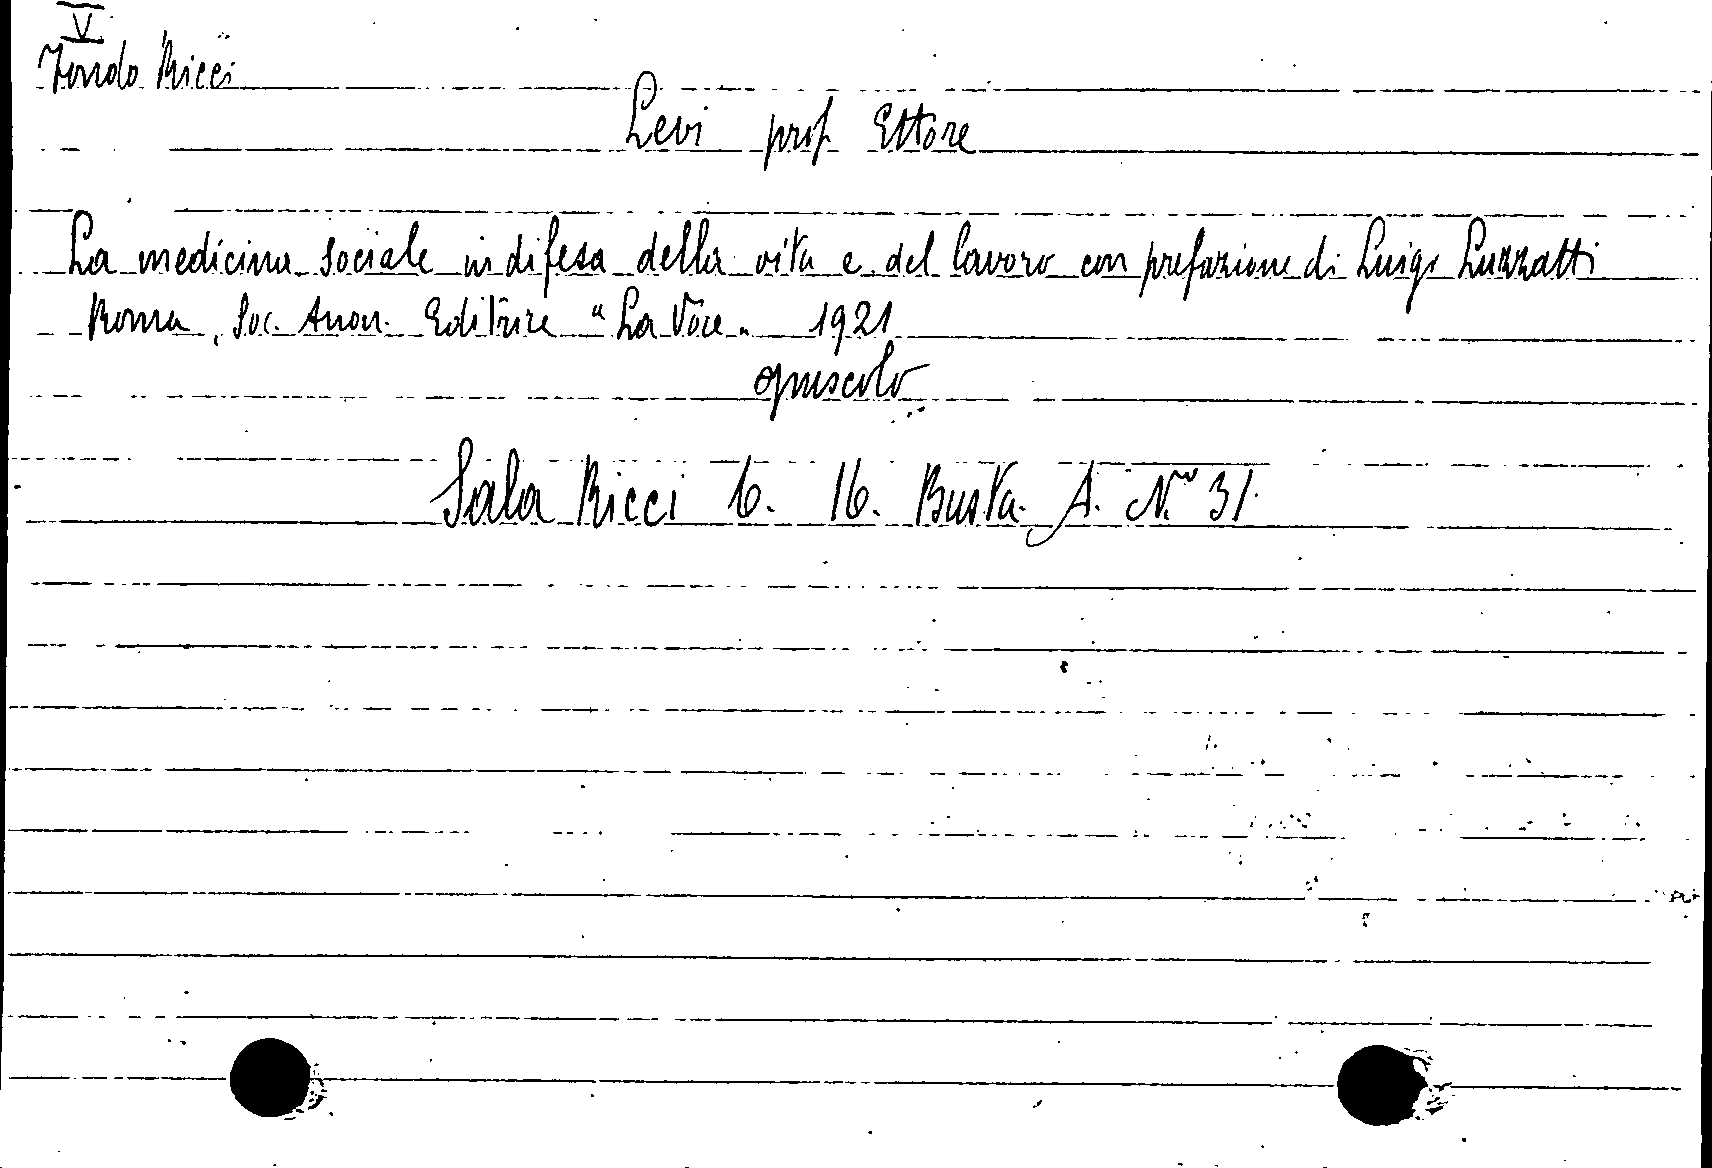 V
Fondo Ricci
Levi prof. Ettore
La medicina sociale in difesa della vita e del lavoro con prefazione di Luigi Luzzatti
Roma, Soc. Anon. Editrice "La Voce" 1921
opuscolo
Sala Ricci 6. 16. Busta. A. N. 31.